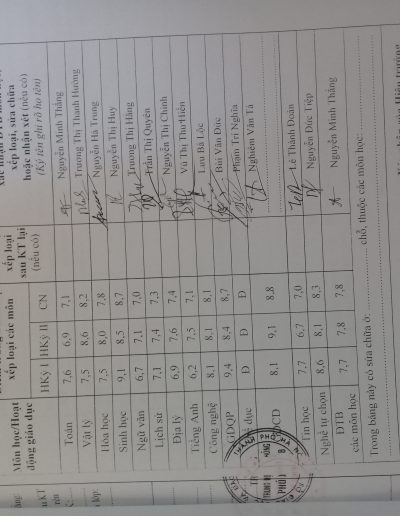 Môn học/Hoạt động giáo dục
xếp loại các môn
HKỳ I HKỳ II CN
xếp loại sau KT lại (nếu có)
xếp loại, sửa chữa hoặc nhận xét (nếu có)
(Ký tên ghi rõ họ tên)
Toán 7,6 6,9 7,1 Nguyễn Minh Thắng
Vật lý 7,5 8,6 8,2 Trương Thị Thanh Hường
Hóa học 7,5 8,0 7,8 Nguyễn Hà Trung
Sinh học 9,1 8,5 8,7 Nguyễn Thị Huy
Ngữ văn 6,7 7,1 7,0 Trương Thị Hằng
Lịch sử 7,1 7,4 7,3 Trần Thị Quyên
Địa lý 6,9 7,6 7,4 Nguyễn Thị Chinh
Tiếng Anh 6,2 7,5 7,1 Vũ Thị Thu Hiền
Công nghệ 8,1 8,1 8,1 Lưu Bá Lộc
GDQP 9,4 8,4 8,7 Bùi Văn Đức
dục Đ Đ Đ Phạm Trí Nghĩa
Nghiêm Văn Tá
CD 8,1 9,1 8,8
Tin học 7,7 6,7 7,0 Lê Thành Đoàn
Nghề tự chọn 8,6 8,1 8,3 Nguyễn Đức Tiệp
ĐTB các môn học 7,7 7,8 7,8 Nguyễn Minh Thắng
Trong bảng này có sửa chữa ở: chỗ, thuộc các môn học: